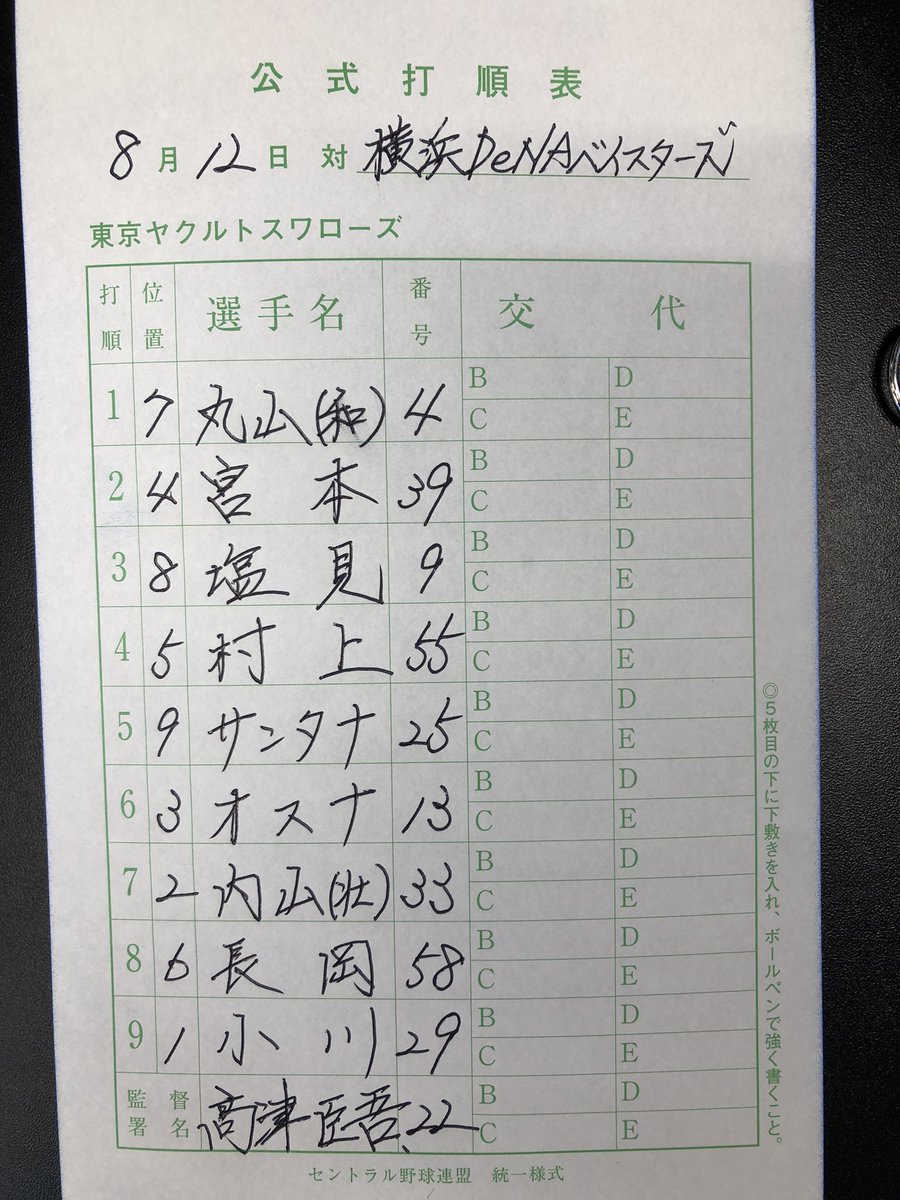 公式打順表
8月12日 対 横浜DeNAベイスターズ
東京ヤクルトスワローズ
打順 位置 選手名 番号 交代
1 7 丸山(和) 4 B D C E
2 4 宮本 39 B D C E
3 8 塩見 9 B D C E
4 5 村上 55 B D C E
5 9 サンタナ 25 B D C E
6 3 オスナ 13 B D C E
7 2 内山(壮) 33 B D C E
8 6 長岡 58 B D C E
9 1 小川 29 B D C E
監督署名 高津臣吾 22 B D C E
◎5枚目の下に下敷きを入れ、ボールペンで強く書くこと。
セントラル野球連盟 統一様式